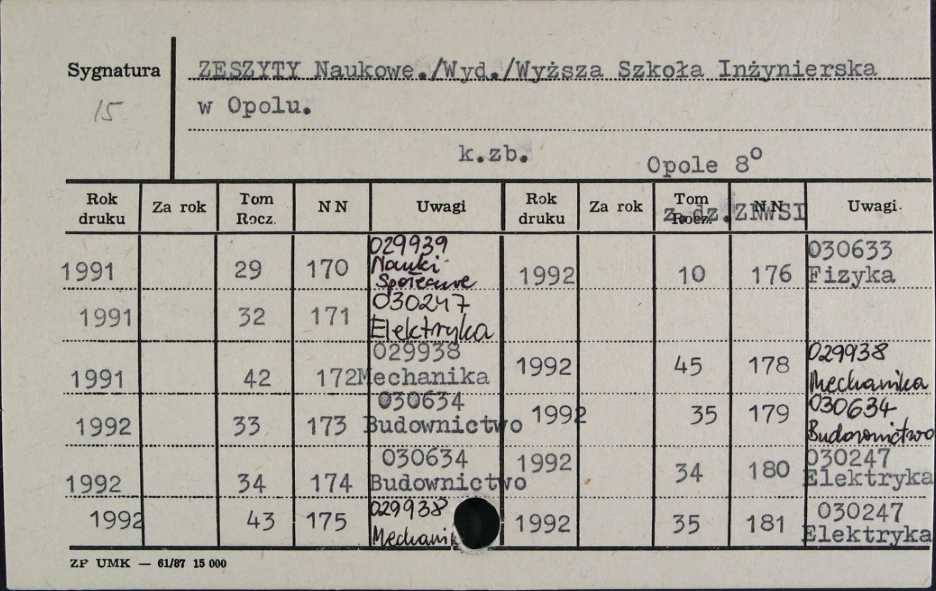 Sygnatura
15
ZESZYTY Naukowe./Wyd./Wyższa Szkoła Inżynierska
w Opolu.
k.zb.
Opole 8°
z dz. ZNWSI
Rok druku Za rok Tom Rocz. NN Uwagi Rok druku Za rok Tom Rocz. NN Uwagi
1991 29 170 029939 Nauki Społeczne 1992 10 176 030633 Fizyka
1991 32 171 030247 Elektryka
1991 42 172 029938 Mechanika 1992 45 178 029938 Mechanika
1992 33 173 030634 Budownictwo 1992 35 179 030634 Budownictwo
1992 34 174 030634 Budownictwo 1992 34 180 030247 Elektryka
1992 43 175 029938 1992 35 181 030247 Elektryka
ZP UMK — 61/87 15 000